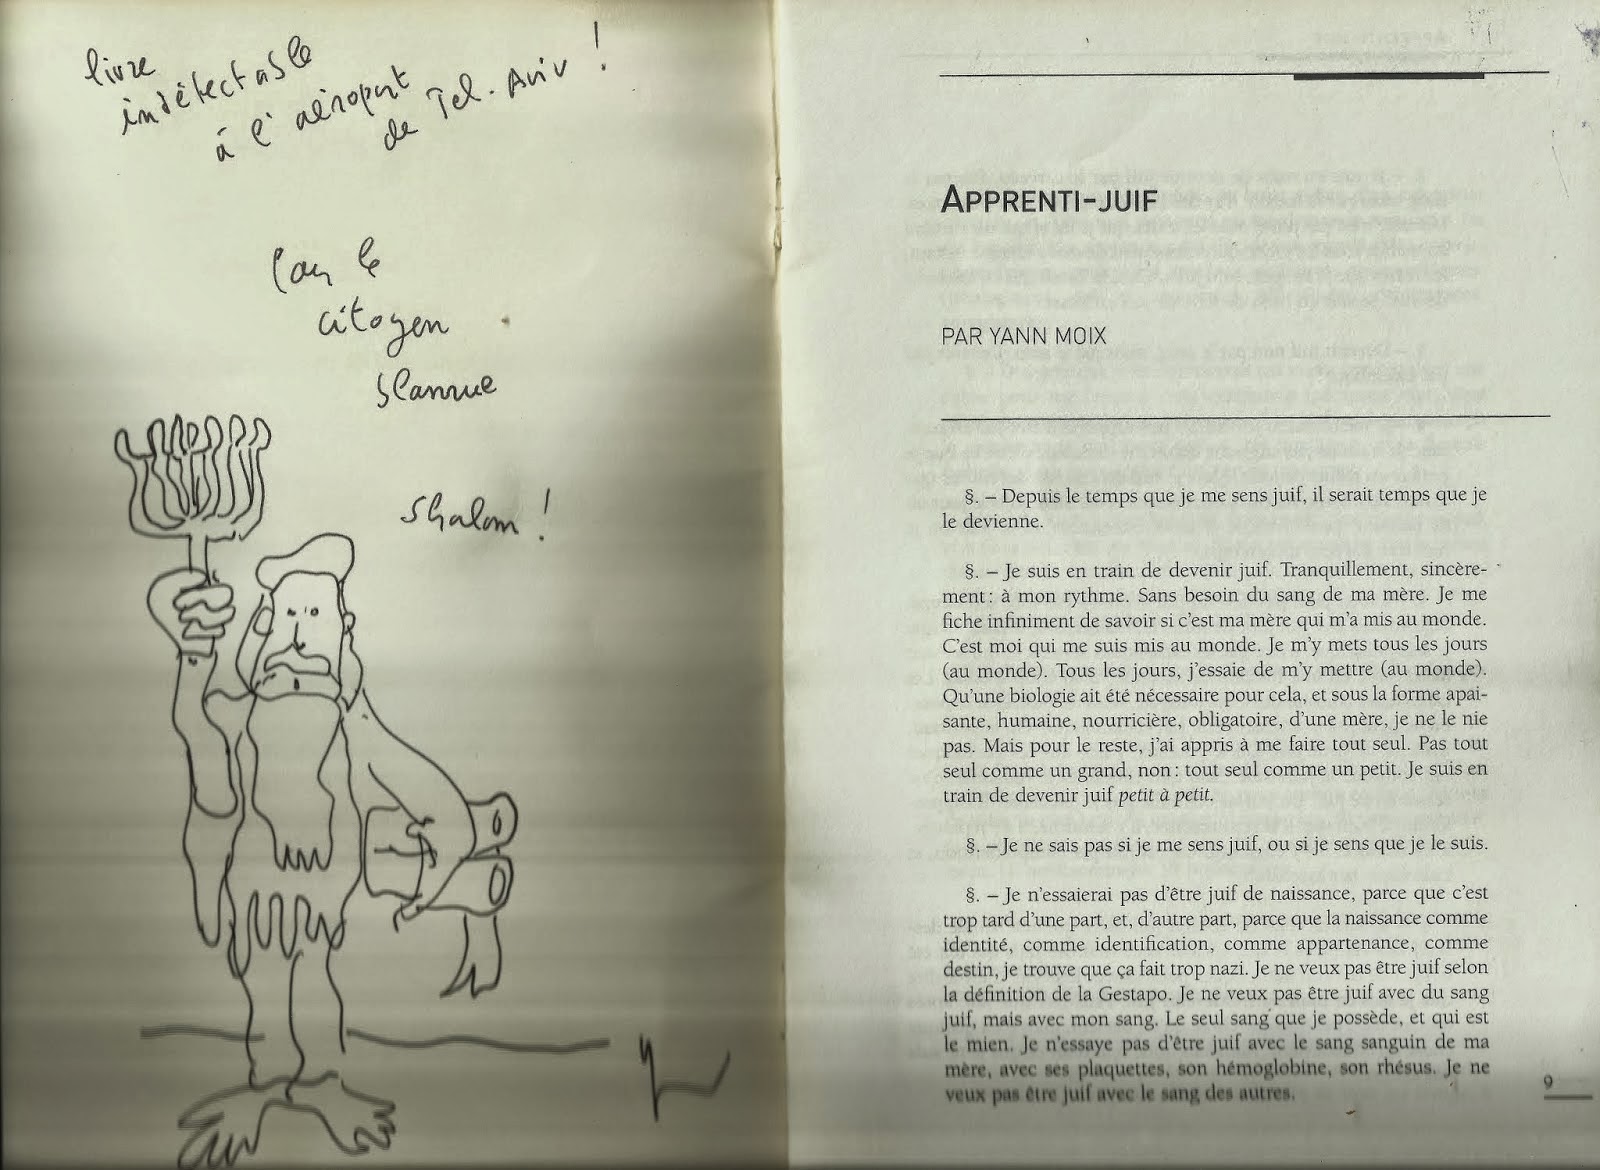 livre
indétectable
à l'aéroport
de Tel-Aviv !
le
citoyen
Shalom !
APPRENTI-JUIF
PAR YANN MOIX
§. – Depuis le temps que je me sens juif, il serait temps que je
le devienne.
§. – Je suis en train de devenir juif. Tranquillement, sincère-
ment : à mon rythme. Sans besoin du sang de ma mère. Je me
fiche infiniment de savoir si c'est ma mère qui m'a mis au monde.
C'est moi qui me suis mis au monde. Je m'y mets tous les jours
(au monde). Tous les jours, j'essaie de m'y mettre (au monde).
Qu'une biologie ait été nécessaire pour cela, et sous la forme apai-
sante, humaine, nourricière, obligatoire, d'une mère, je ne le nie
pas. Mais pour le reste, j'ai appris à me faire tout seul. Pas tout
seul comme un grand, non : tout seul comme un petit. Je suis en
train de devenir juif petit à petit.
§. – Je ne sais pas si je me sens juif, ou si je sens que je le suis.
§. – Je n'essaierai pas d'être juif de naissance, parce que c'est
trop tard d'une part, et, d'autre part, parce que la naissance comme
identité, comme identification, comme appartenance, comme
destin, je trouve que ça fait trop nazi. Je ne veux pas être juif selon
la définition de la Gestapo. Je ne veux pas être juif avec du sang
juif, mais avec mon sang. Le seul sang que je possède, et qui est
le mien. Je n'essaye pas d'être juif avec le sang sanguin de ma
mère, avec ses plaquettes, son hémoglobine, son rhésus. Je ne
veux pas être juif avec le sang des autres.
9